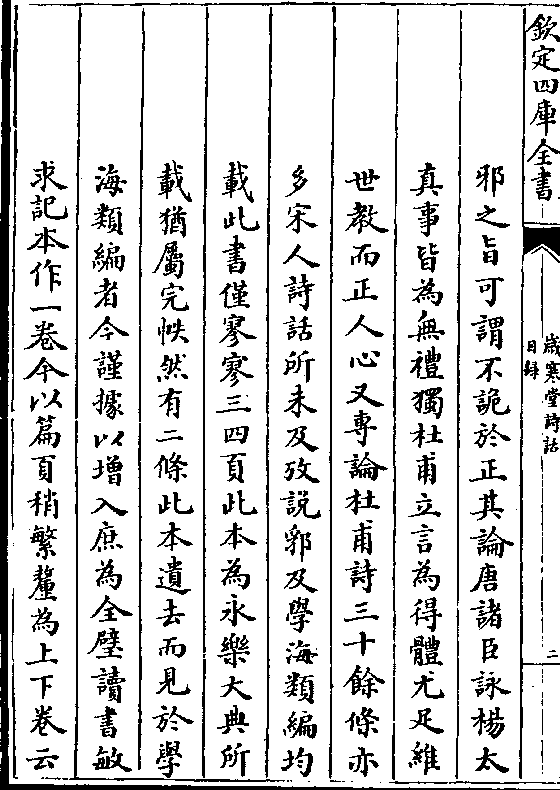 欽定四庫全書
歲寒堂詩話
目録
二
邪之旨可謂不詭於正其論唐諸臣詠楊太
真事皆為無禮獨杜甫立言為得體尤足維
世教而正人心又專論杜甫詩三十餘條亦
多宋人詩話所未及攷説郛及學海類編均
載此書僅寥寥三四頁此本為永樂大典所
載猶屬完帙然有二條此本遺去而見於學
海類編者今謹據以增入庶為全璧讀書敏
求記本作一卷今以篇頁稍繁釐為上下卷云